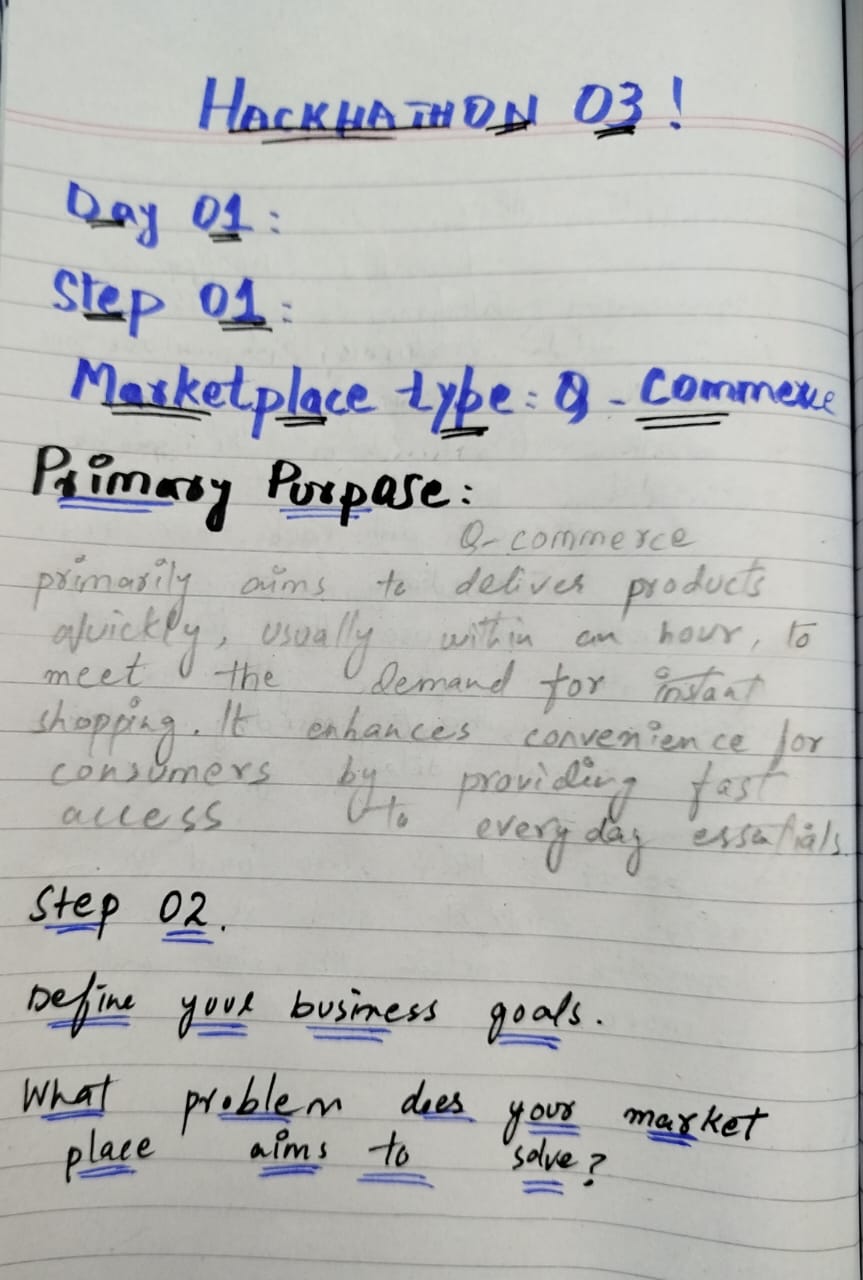 HACKHATHON 03!
Day 01:
Step 01:
Marketplace type: Q-Commerce
Primary Purpase:
Q-commerce
primarily aims to deliver products
quickly, usually within an hour, to
meet the demand for instant
shopping. It enhances convenience for
consumers by providing fast
access to everyday essentials
Step 02.
Define your business goals.
What problem does your market
place aims to solve?